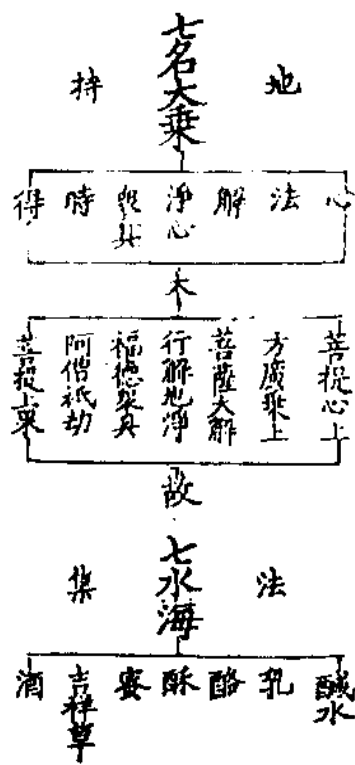 地
七名大乘
持
心
法
解
淨心
眾具
時
得
菩提心上
方廣乘上
菩薩大解
行解地淨
福德眾具
阿僧祇劫
菩提上果
故
法
七水海
集
鹹水
乳
酪
酥
蜜
吉祥草
酒